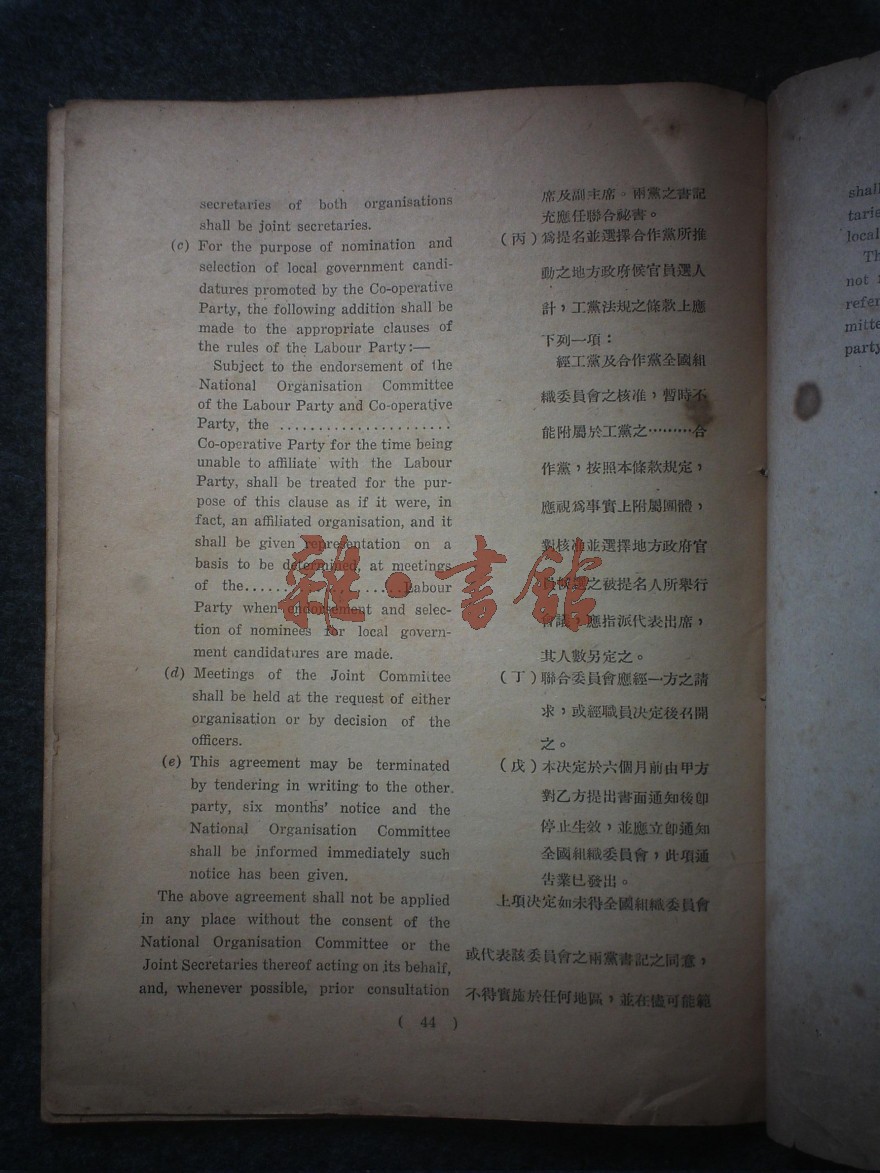 secretaries of both organisations
shall be joint secretaries.
(c) For the purpose of nomination and
selection of local government candi-
datures promoted by the Co-operative
Party, the following addition shall be
made to the appropriate clauses of
the rules of the Labour Party:—
Subject to the endorsement of the
National Organisation Committee
of the Labour Party and Co-operative
Party, the ......................
Co-operative Party for the time being
unable to affiliate with the Labour
Party, shall be treated for the pur-
pose of this clause as if it were, in
fact, an affiliated organisation, and it
shall be given representation on a
basis to be determined, at meetings
of the....................Labour
Party when endorsement and selec-
tion of nominees for local govern-
ment candidatures are made.
(d) Meetings of the Joint Committee
shall be held at the request of either
organisation or by decision of the
officers.
(e) This agreement may be terminated
by tendering in writing to the other
party, six months' notice and the
National Organisation Committee
shall be informed immediately such
notice has been given.
The above agreement shall not be applied
in any place without the consent of the
National Organisation Committee or the
Joint Secretaries thereof acting on its behalf,
and, whenever possible, prior consultation
席及副主席。兩黨之書記
充應任聯合祕書。
(丙)爲提名並選擇合作黨所推
動之地方政府候官員選人
計，工黨法規之條款上應
下列一項：
經工黨及合作黨全國組
織委員會之核准，暫時不
能附屬於工黨之………合
作黨，按照本條款規定，
應視爲事實上附屬團體，
對核准並選擇地方政府官
員候選之被提名人所舉行
會議，應指派代表出席，
其人數另定之。
(丁)聯合委員會應經一方之請
求，或經職員決定後召開
之。
(戊)本決定於六個月前由甲方
對乙方提出書面通知後卽
停止生效，並應立卽通知
全國組織委員會，此項通
告業已發出。
上項決定如未得全國組織委員會
或代表該委員會之兩黨書記之同意，
不得實施於任何地區，並在儘可能範
( 44 )
雜·書館
shall
tarie
local
Th
not
refer
mitte
party